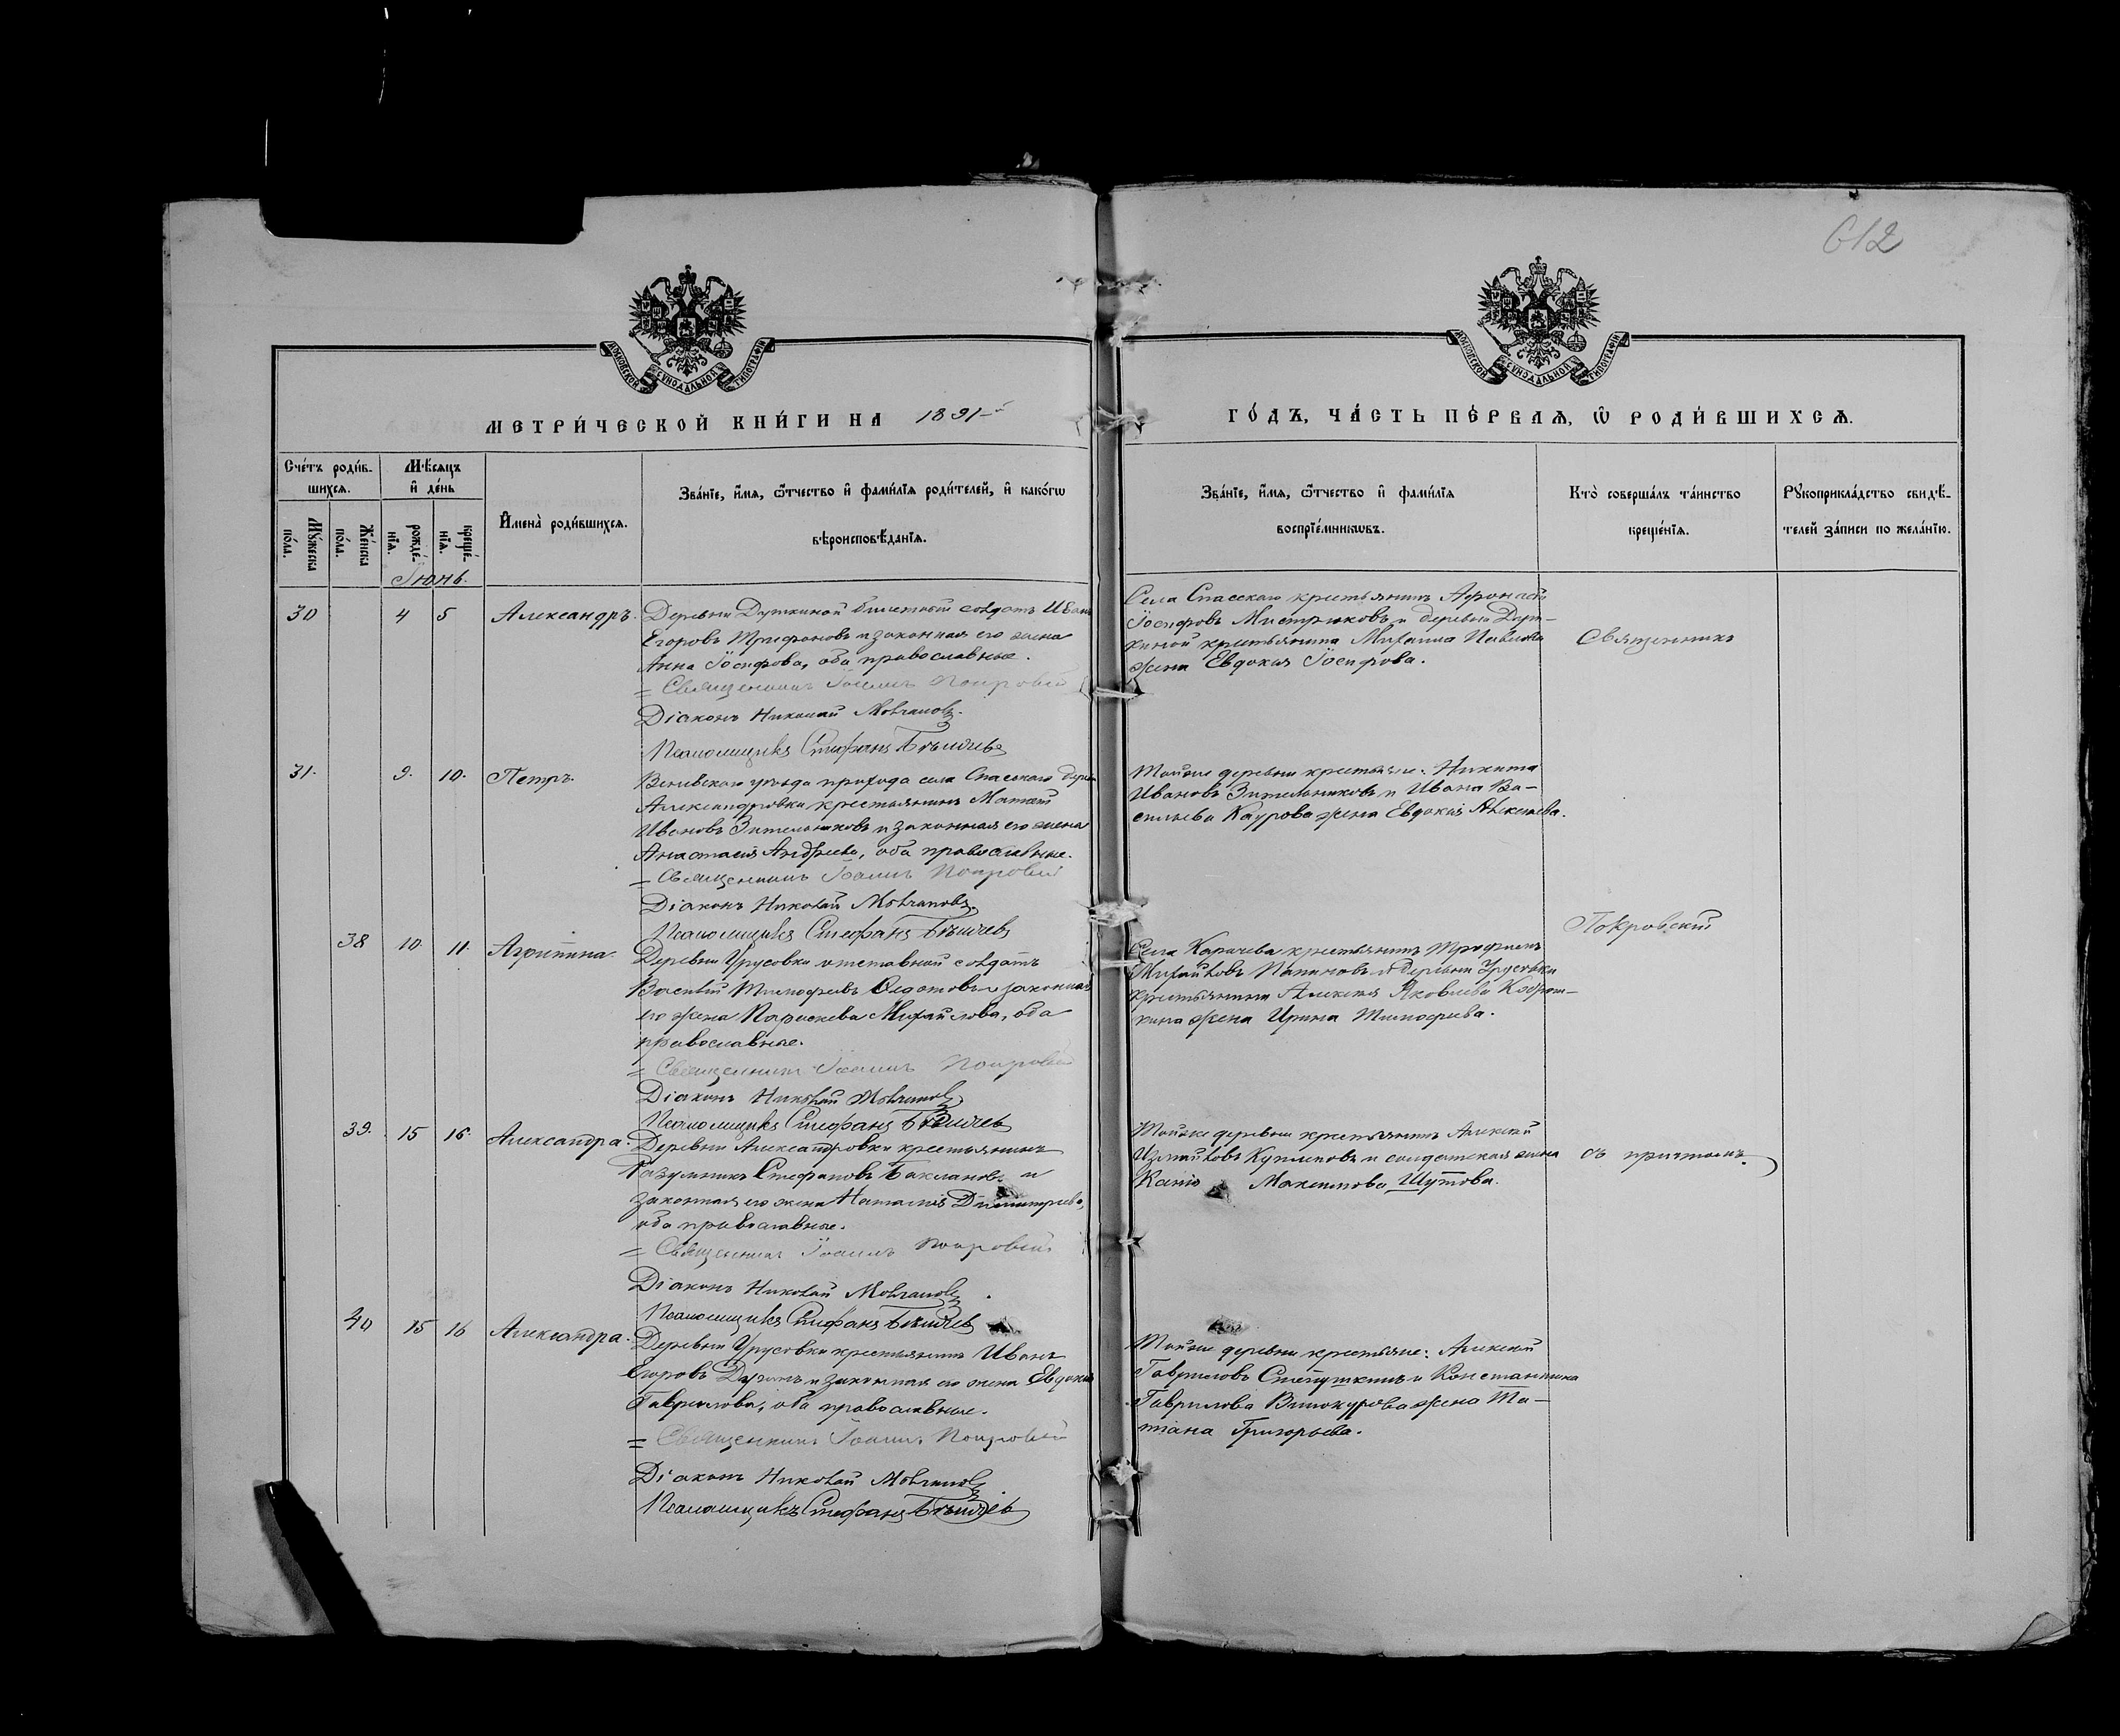 612
МОСКОВСКОЙ СѴНОДАЛЬНОЙ ТИПОГРАФІИ
МОСКОВСКОЙ СѴНОДАЛЬНОЙ ТИПОГРАФІИ
МЕТРИ́ЧЕСКОЙ КНИ́ГИ НА 1891-й
ГО́ДЪ, ЧА́СТЬ ПЕ́РВАѦ, Ѽ РОДИ́ВШИХСѦ.
Сче́тъ роди́в-
шихсѧ.
Мꙋ́жеска
по́ла.
Же́нска
по́ла.
Мѣ́сѧцъ
и҆ де́нь
рожде́-
нїѧ.
креще́-
нїѧ.
И҆мена̀ роди́вшихсѧ.
Зва́нїе, и҆́мѧ, ѻ҆́тчество и҆ фами́лїѧ роди́телей, и҆ како́гѡ
вѣроисповѣ́данїѧ.
Зва́нїе, и҆́мѧ, ѻ҆́тчество и҆ фами́лїѧ
воспрїе́мникѡвъ.
Кто̀ соверша́лъ та́инство
креще́нїѧ.
Рꙋкоприкла́дство свидѣ́-
телей за́писи по жела́нїю.
Іюнь.
30 4 5 Александръ. Деревни Дуткиной билетный солдатъ Иванъ
Егоровъ Трифоновъ и законная его жена
Анна Іосифова, оба православные.
Священникъ Іоаннъ Покровскій
Діаконъ Николай Молчановъ.
Псаломщикъ Стефанъ
Села Спасскаго крестьянинъ Афонасій
Іосифовъ Мистрюковъ и деревни Дут-
киной крестьянина Михаила Павлова
жена Евдокия Іосифова.
Священникъ
31. 9. 10. Петръ. Веневскаго уѣзда прихода села Спасскаго дерев
Александровки крестьянинъ Матвей
Ивановъ Зительниковъ и законная его жена
Анастасія Андреева, оба православные.
Священникъ Іоаннъ Покровскій
Діаконъ Николай Молчановъ.
Псаломщикъ Стефанъ
Тойже деревни крестьяне: Никита
Ивановъ Зительниковъ и Ивана Ва-
сильева Каурова жена Евдокія Алексеева.
Покровский
38 10 11. Агрипина. Деревни Урусовки отставной солдатъ
Василій Тимофеевъ Федотовъ и законная
его жена Параскева Михайлова, оба
православные.
Священникъ Іоаннъ Покровскій
Діаконъ Николай Молчановъ
Псаломщикъ Стефанъ
Села Карачева крестьянинъ Трофимъ
Михайловъ и деревни Урусовки
крестьянина Алексея Яковлева
жена Ирина Тимофеева.
39. 15 16. Александра. Деревни Александровки крестьянинъ
Разумникъ Стефановъ Баклановъ и
законная его жена Наталія Димитриева,
оба православные.
Священникъ Іоаннъ Покровскій
Діаконъ Николай Молчановъ
Псаломщикъ Стефанъ
Тойже деревни крестьянинъ Алексей
Измайловъ и солдатская жена
Максимова Шутова.
съ причтомъ.
40 15 16 Александра. Деревни Урусовки крестьянинъ Иванъ
Егоровъ и законная его жена Евдокия
Гаврилова, оба православные.
Священникъ Іоаннъ Покровскій
Діаконъ Николай Молчановъ
Псаломщикъ Стефанъ
Тойже деревни крестьяне: Алексей
Гавриловъ и Константина
Гаврилова Винокурова жена Та-
тіана Григорьева.